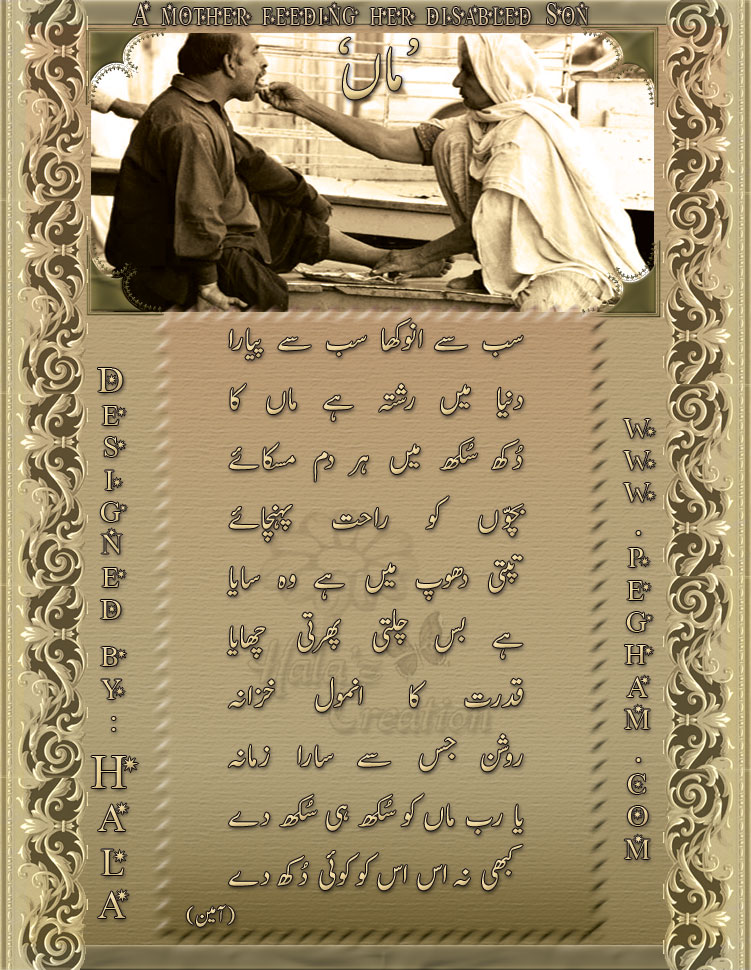 A MOTHER FEEDING HER DISABLED SON
’ماں‘
سب سے انوکھا سب سے پیارا
دنیا میں رشتہ ہے ماں کا
دُکھ سُکھ میں ہر دم مسکائے
بچّوں کو راحت پہنچائے
تپتی دھوپ میں ہے وہ سایا
ہے بس چلتی پھرتی چھایا
قدرت کا انمول خزانہ
روشن جس سے سارا زمانہ
یا رب ماں کو سُکھ ہی سُکھ دے
کبھی نہ اس اس کو کوئی دُکھ دے
(آمین)
DESIGNED BY: HALA
WWW.PEGHAM.COM
Hala's
Creation